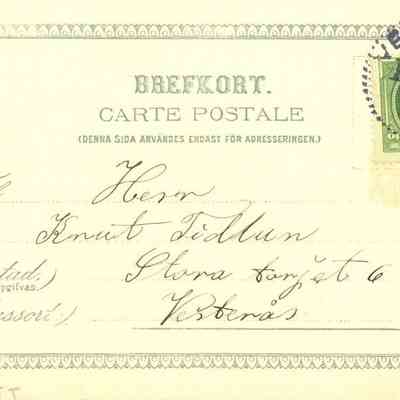 BREFKORT.
CARTE POSTALE
(DENNA SIDA ANVÄNDES ENDAST FÖR ADRESSERINGEN.)
Herrn
Knut Tidlun
stad.) Stora torget 6
Vesterås